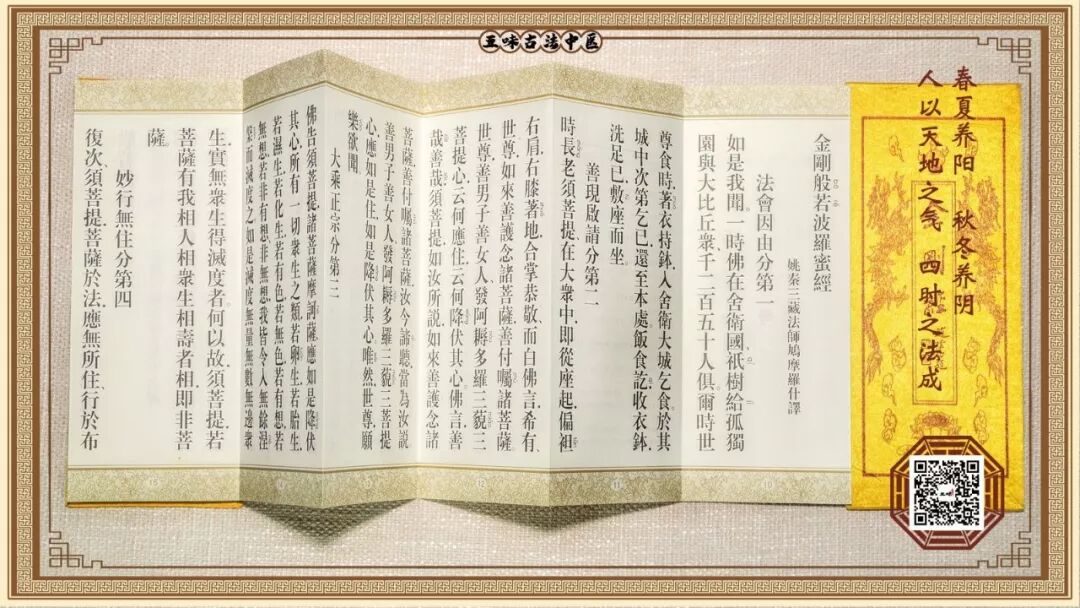 五味古法中医
春夏养阳 秋冬养阴
人以天地之气 四时之法成
金剛般若波羅蜜經
姚秦三藏法師鳩摩羅什譯
法會因由分第一
如是我聞。一時佛在舍衛國、祇樹給孤獨
園、與大比丘衆千二百五十人俱。爾時世
尊食時、著衣持鉢、入舍衛大城乞食、於其
城中次第乞已、還至本處、飯食訖、收衣鉢、
洗足已、敷座而坐。
善現啟請分第二
時長老須菩提、在大衆中、即從座起、偏袒
右肩、右膝著地、合掌恭敬、而白佛言、希有、
世尊、如來善護念諸菩薩、善付囑諸菩薩、
世尊、善男子善女人、發阿耨多羅三藐三
菩提心、云何應住、云何降伏其心。佛言、善
哉善哉、須菩提、如汝所說、如來善護念諸
菩薩、善付囑諸菩薩、汝今諦聽、當為汝說、
善男子善女人、發阿耨多羅三藐三菩提
心、應如是住、如是降伏其心。唯然世尊、願
樂欲聞。
大乘正宗分第三
佛告須菩提、諸菩薩摩訶薩、應如是降伏
其心、所有一切衆生之類、若卵生、若胎生、
若濕生、若化生、若有色、若無色、若有想、若
無想、若非有想非無想、我皆令入無餘涅
槃而滅度之、如是滅度無量無數無邊衆
生、實無衆生得滅度者、何以故、須菩提、若
菩薩有我相人相衆生相壽者相、即非菩
薩。
妙行無住分第四
復次、須菩提、菩薩於法、應無所住、行於布
10
11
12
13
14
15